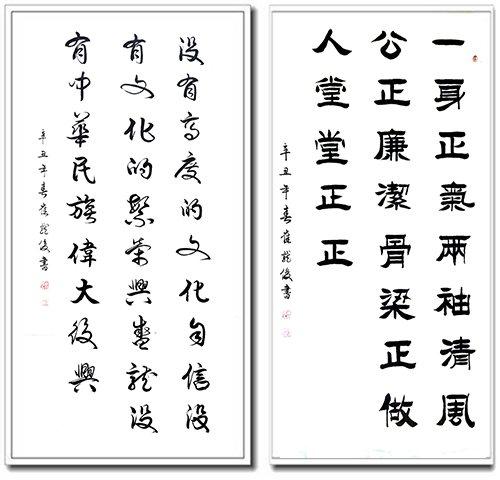 一身正氣兩袖清風
公正廉潔骨梁正做
人堂堂正正
辛丑年春崔俊書
没有高度的文化自信没
有文化的繁荣興盛就没
有中華民族偉大復興
辛丑年春崔俊書